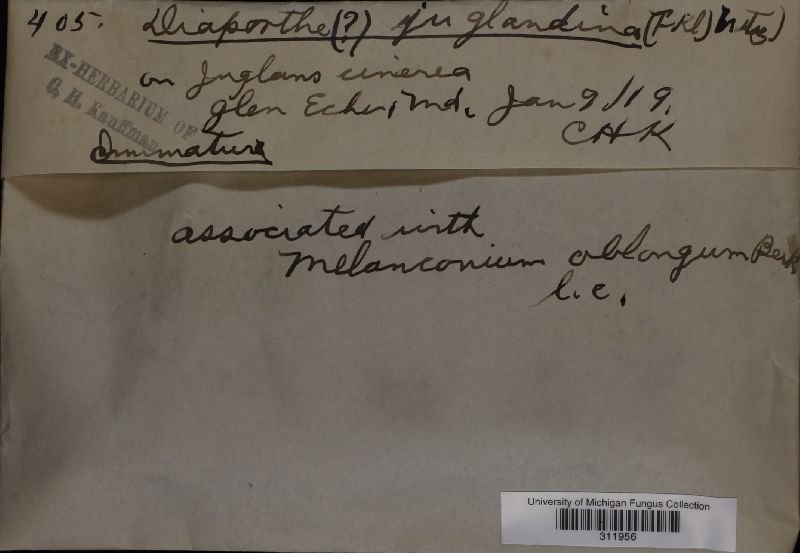 405. Diaporthe(?) juglandina (Fkl) Nits)
EX-HERBARIUM OF
C. H. Kauffman
on Juglans cinerea
Glen Echo, Md. Jan 9/19.
CHK
Immature
associated with
Melanconium oblongum Berk
l.c.
University of Michigan Fungus Collection
311956